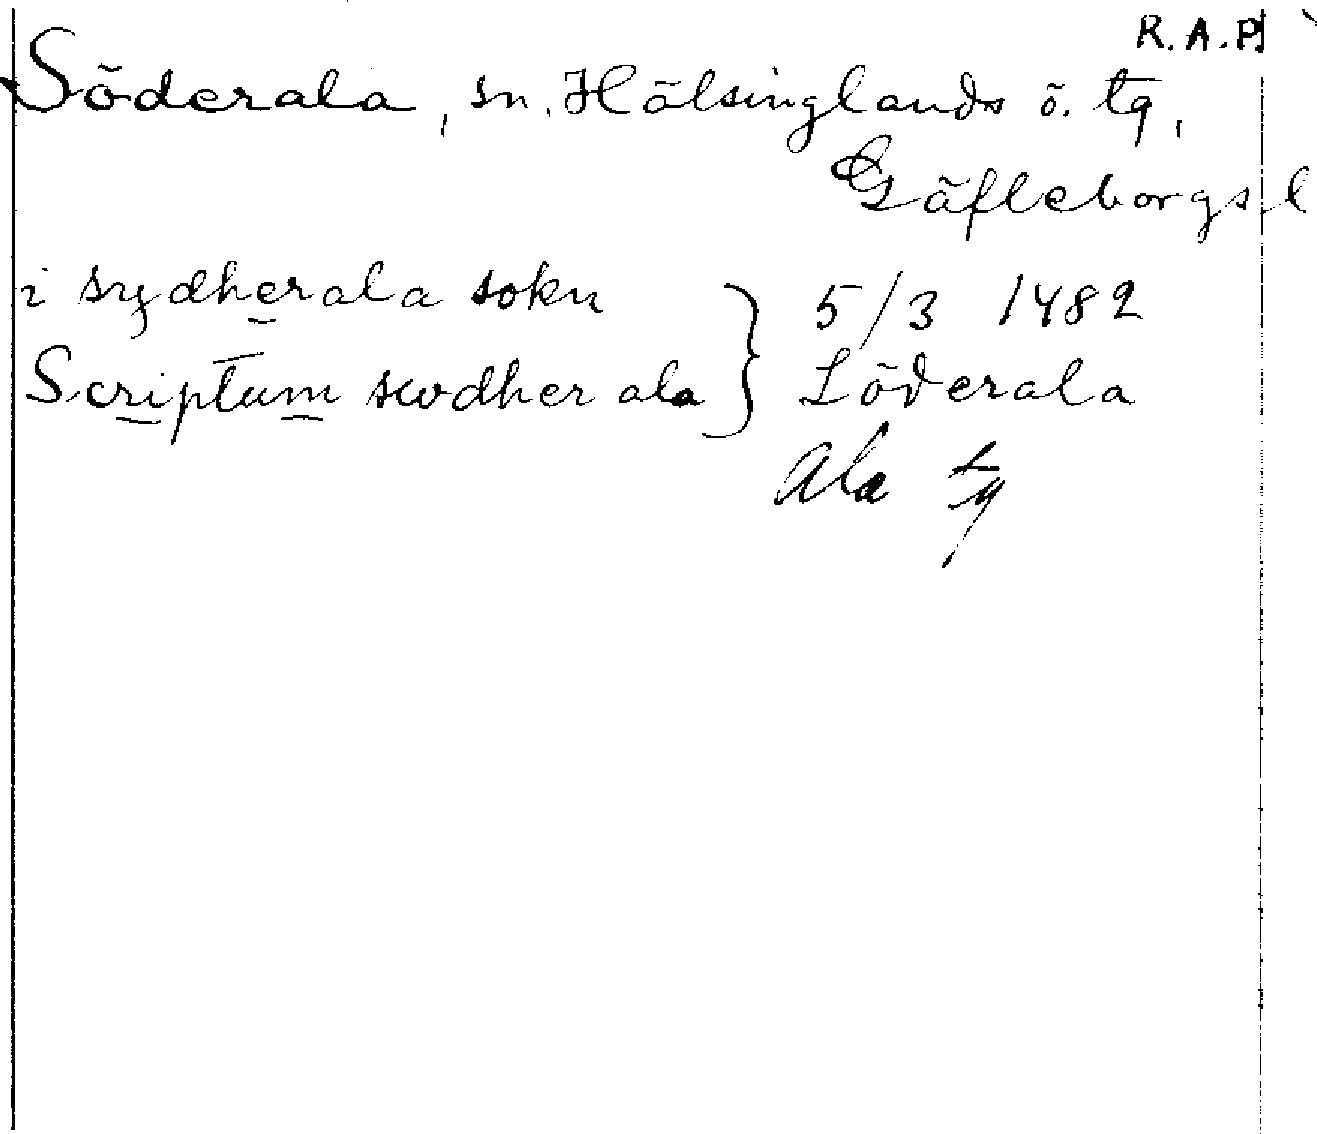 R.A.P.
Söderala, sn. Hälsinglands ö. tg,
Gäfleborgs l
i sydherala sokn } 5/3 1482
Scriptum swdher ala } Söderala
Ala